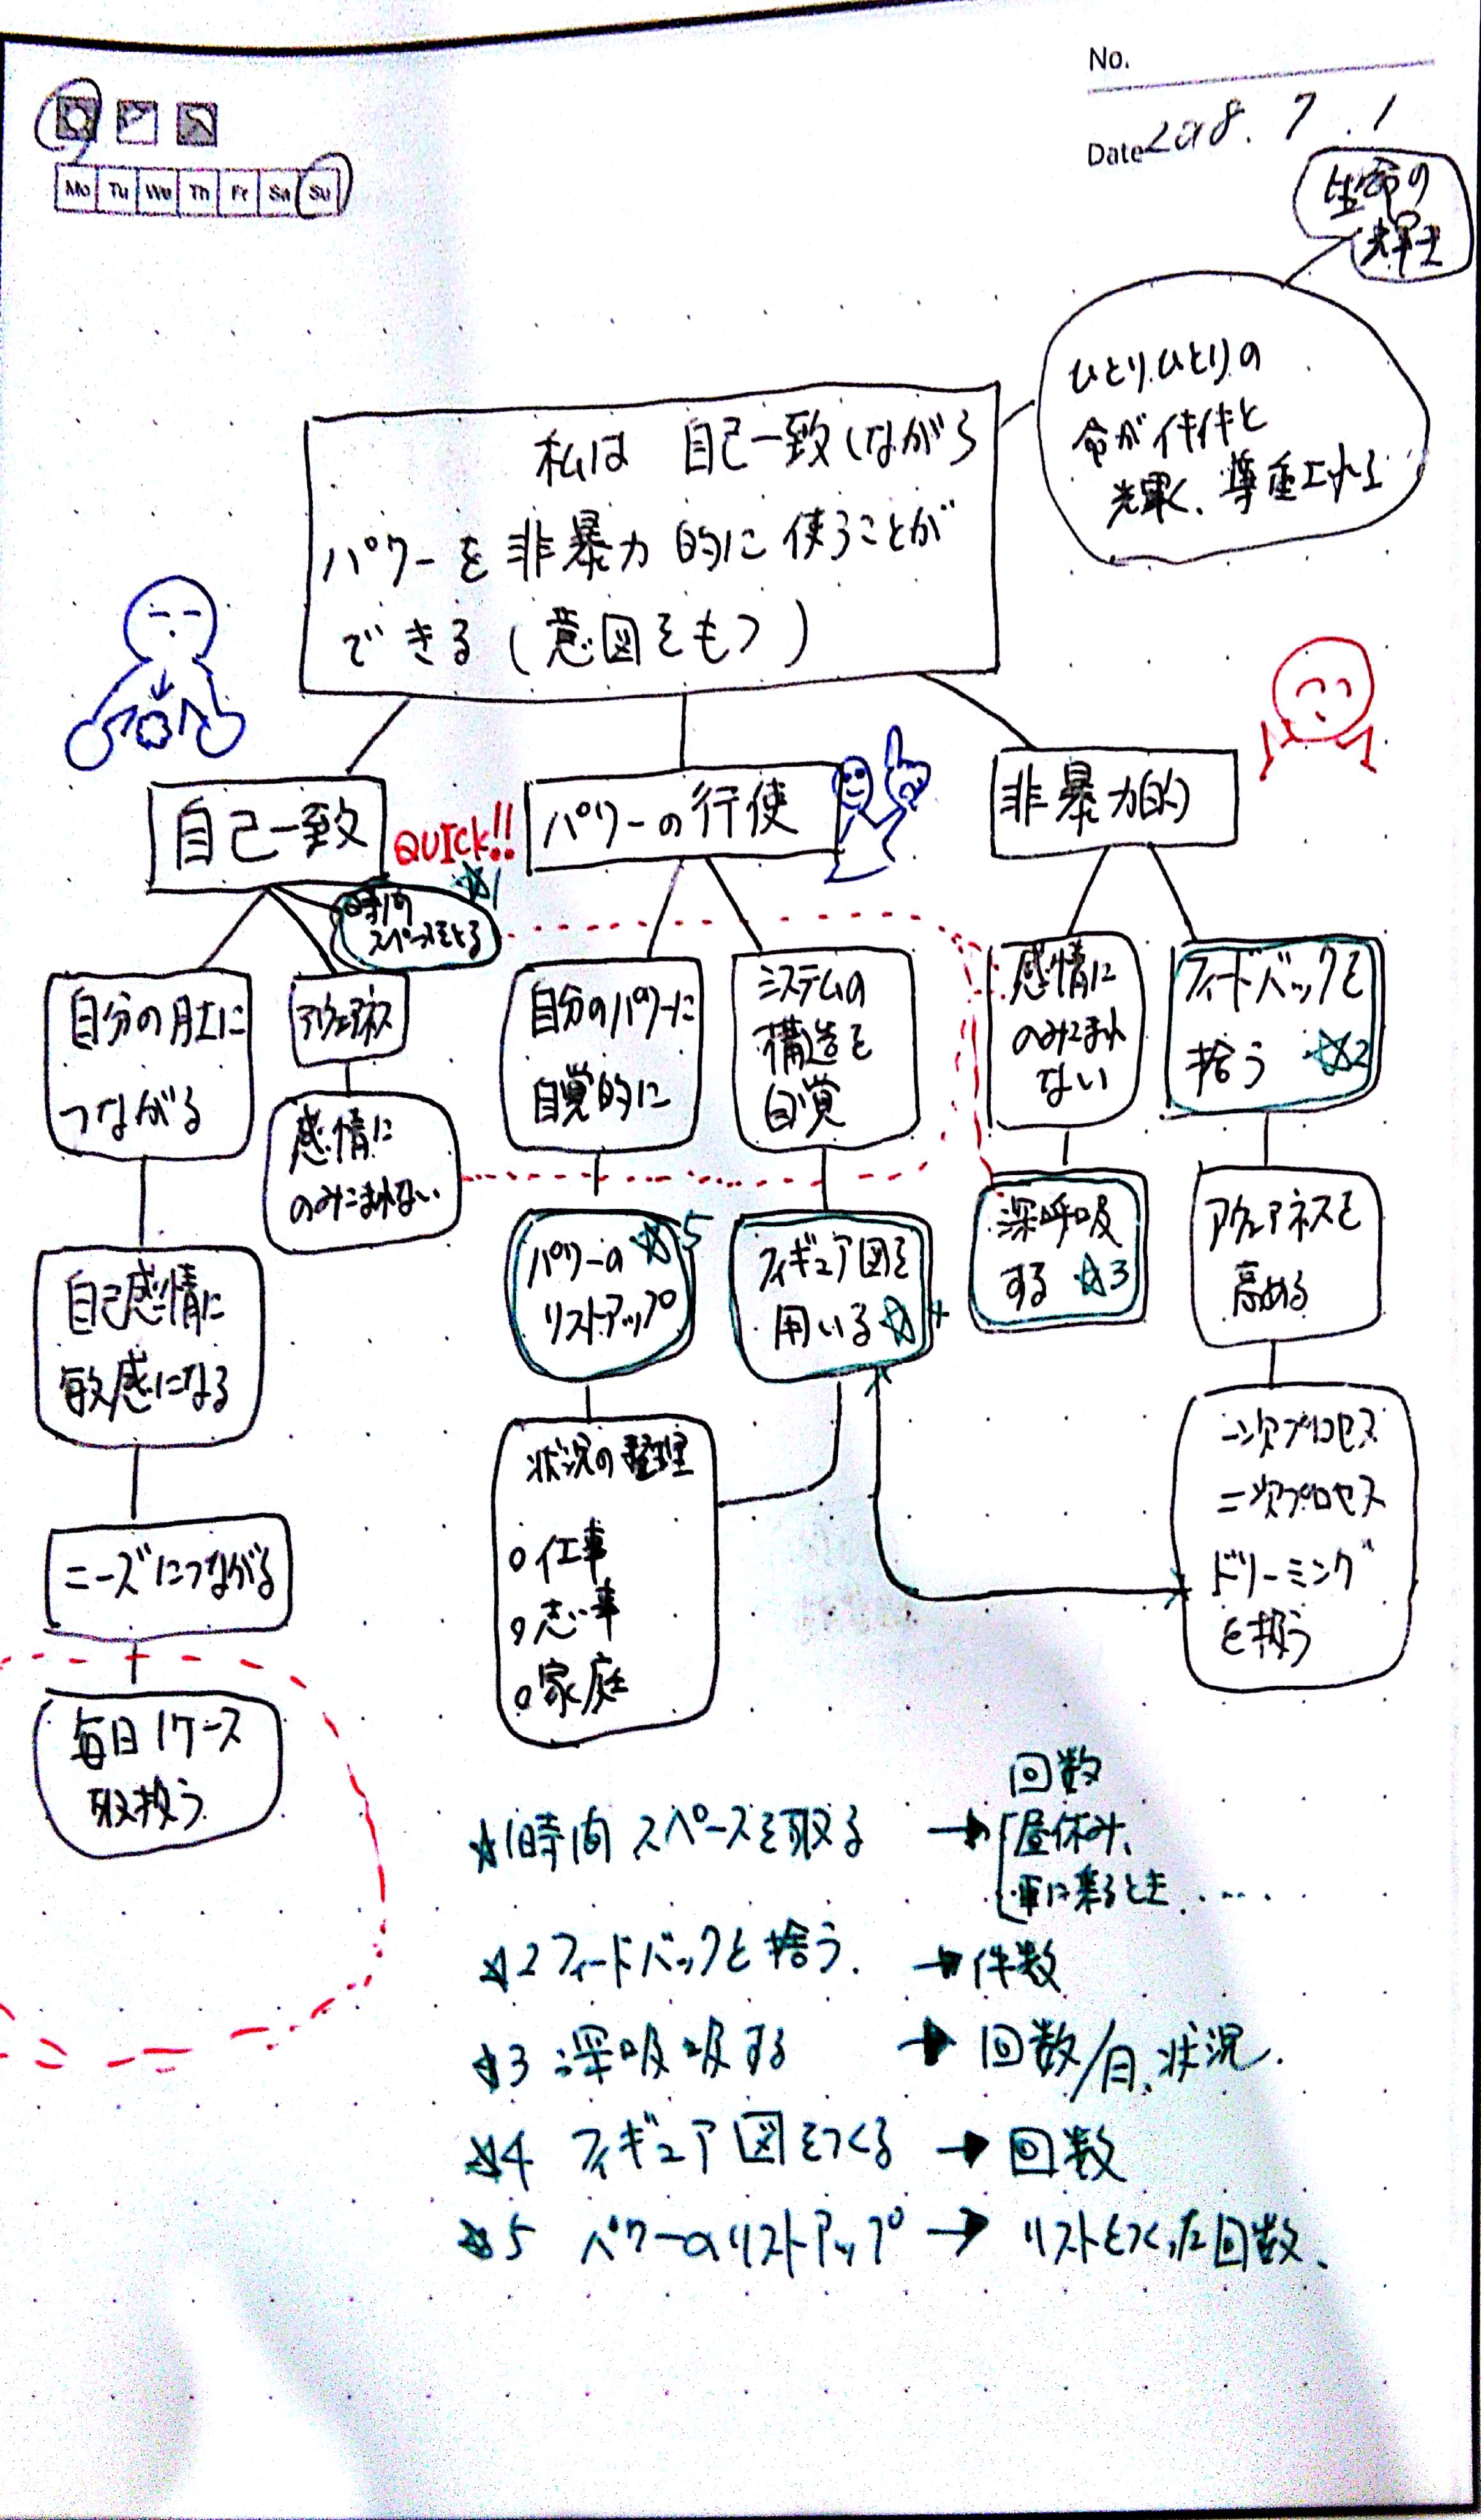 No.
Date 2018.7.1
Mo Tu We Th Fr Sa Su
生命の
輝き
ひとりひとりの
命が活き活きと
輝く、尊重される
私は 自己一致しながら
パワーを非暴力的に使うことが
できる(意図をもつ)
自己一致
QUICK!!
☆1
時間
スペースをとる
パワーの行使
非暴力的
自分の内に
つながる
アウェアネス
感情に
のみこまれない
自分のパワーに
自覚的に
システムの
構造を
自覚
感情に
のみこまれ
ない
フィードバックを
拾う ☆2
自己感情に
敏感になる
パワーの ☆5
リストアップ
フィギュア図を
用いる ☆4
深呼吸
する ☆3
アウェアネスを
高める
ニーズにつながる
状況の整理
○仕事
○志事
○家庭
一次プロセス
二次プロセス
ドリーミング
を扱う
毎日1ケース
取扱う
回数
☆1時間 スペースを取る → 昼休み、
車に乗るとき.....
☆2フィードバックを拾う. → 件数
☆3 深呼吸する → 回数/日、状況.
☆4 フィギュア図をつくる → 回数
☆5 パワーのリストアップ → リストをつくった回数、